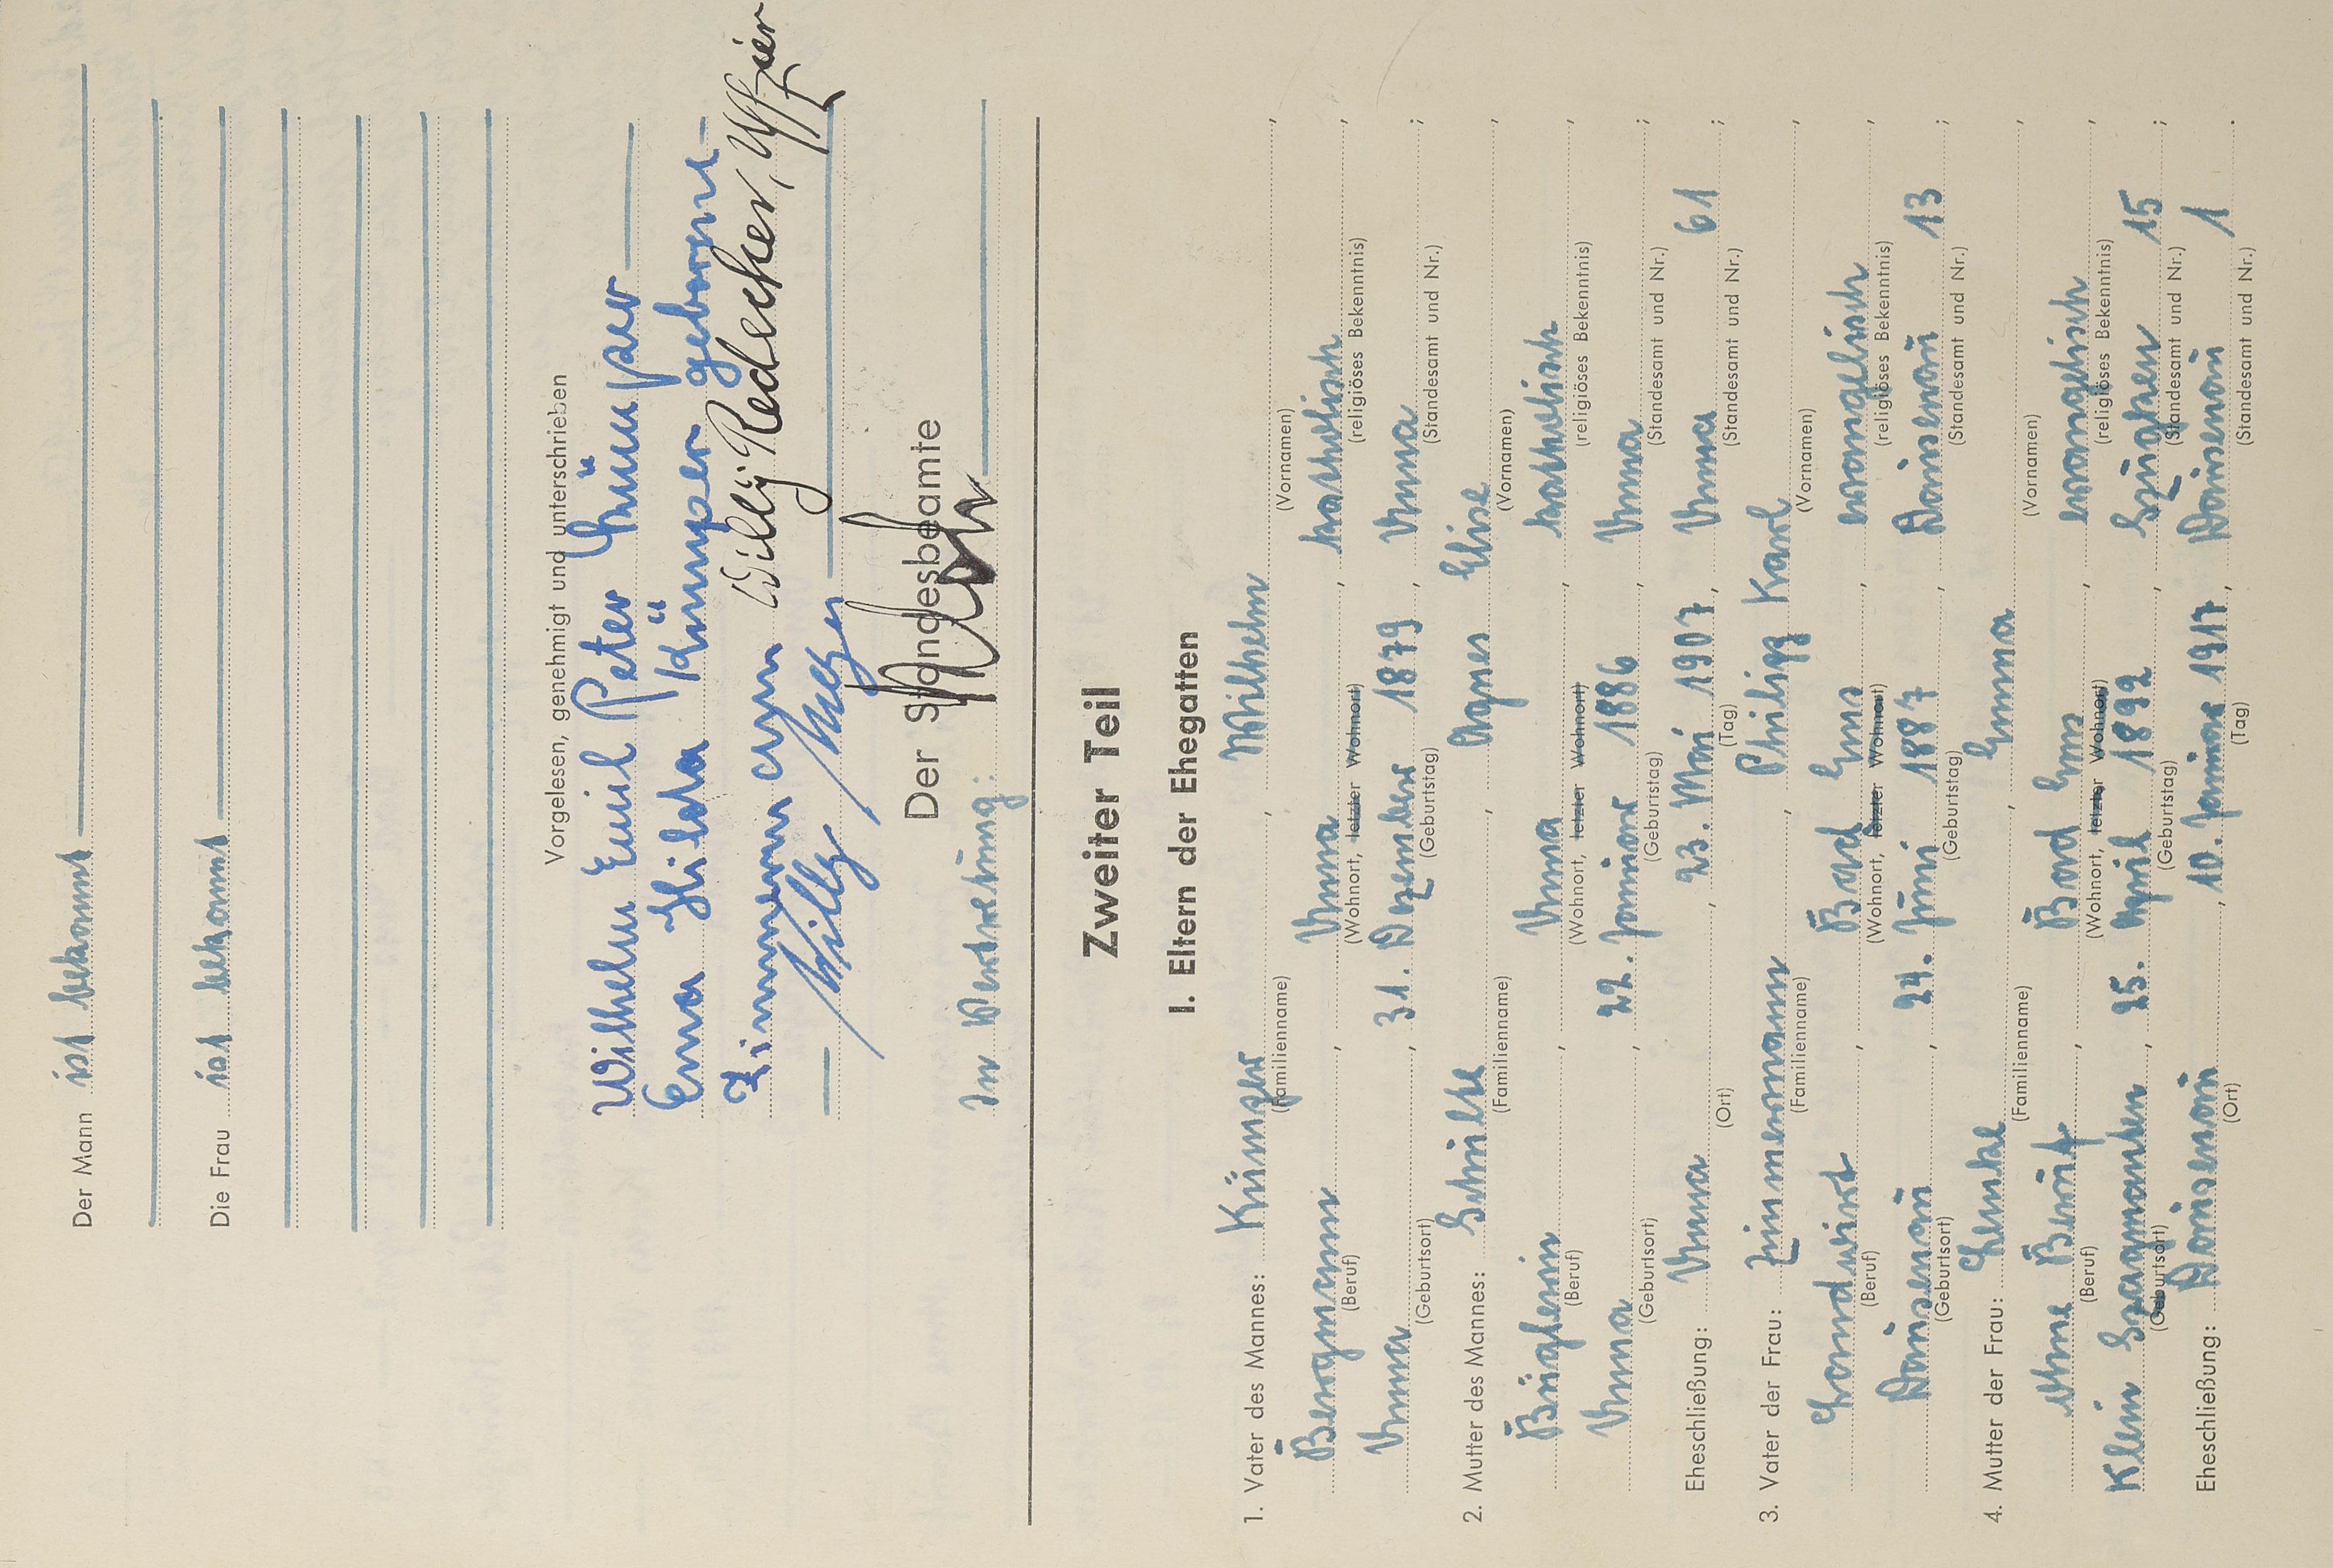 Der Mann ist bekannt
Die Frau ist bekannt
Vorgelesen, genehmigt und unterschrieben
Wilhelm Emil Peter Kümper
Erna Hilda Kümper geborene
Zimmermann Willy Redecker, Uffzier
Willy
Der Standesbeamte
In Vertretung:
Zweiter Teil
I. Eltern der Ehegatten
1. Vater des Mannes: Kümper, Wilhelm,
(Familienname) (Vornamen)
Bergmann, Unna, katholisch,
(Beruf) (Wohnort, letzter Wohnort) (religiöses Bekenntnis)
Unna, 31. Dezember 1879, Unna;
(Geburtsort) (Geburtstag) (Standesamt und Nr.)
2. Mutter des Mannes: Schulte, Agnes Elise,
(Familienname) (Vornamen)
Büglerin, Unna, katholisch,
(Beruf) (Wohnort, letzter Wohnort) (religiöses Bekenntnis)
Unna, 22. Januar 1886, Unna;
(Geburtsort) (Geburtstag) (Standesamt und Nr.)
Eheschließung: Unna, 23. Mai 1907, Unna 61;
(Ort) (Tag) (Standesamt und Nr.)
3. Vater der Frau: Zimmermann, Philipp Karl,
(Familienname) (Vornamen)
Landwirt, Bad Ems, evangelisch,
(Beruf) (Wohnort, letzter Wohnort) (religiöses Bekenntnis)
Dausenau, 24. Juni 1887, Dausenau 13;
(Geburtsort) (Geburtstag) (Standesamt und Nr.)
4. Mutter der Frau: Lemke, Emma,
(Familienname) (Vornamen)
ohne Beruf, Bad Ems, evangelisch,
(Beruf) (Wohnort, letzter Wohnort) (religiöses Bekenntnis)
Klein, 25. April 1892, 15;
(Geburtsort) (Geburtstag) (Standesamt und Nr.)
Eheschließung: Dausenau, 10. Januar 1917, Dausenau 1.
(Ort) (Tag) (Standesamt und Nr.)